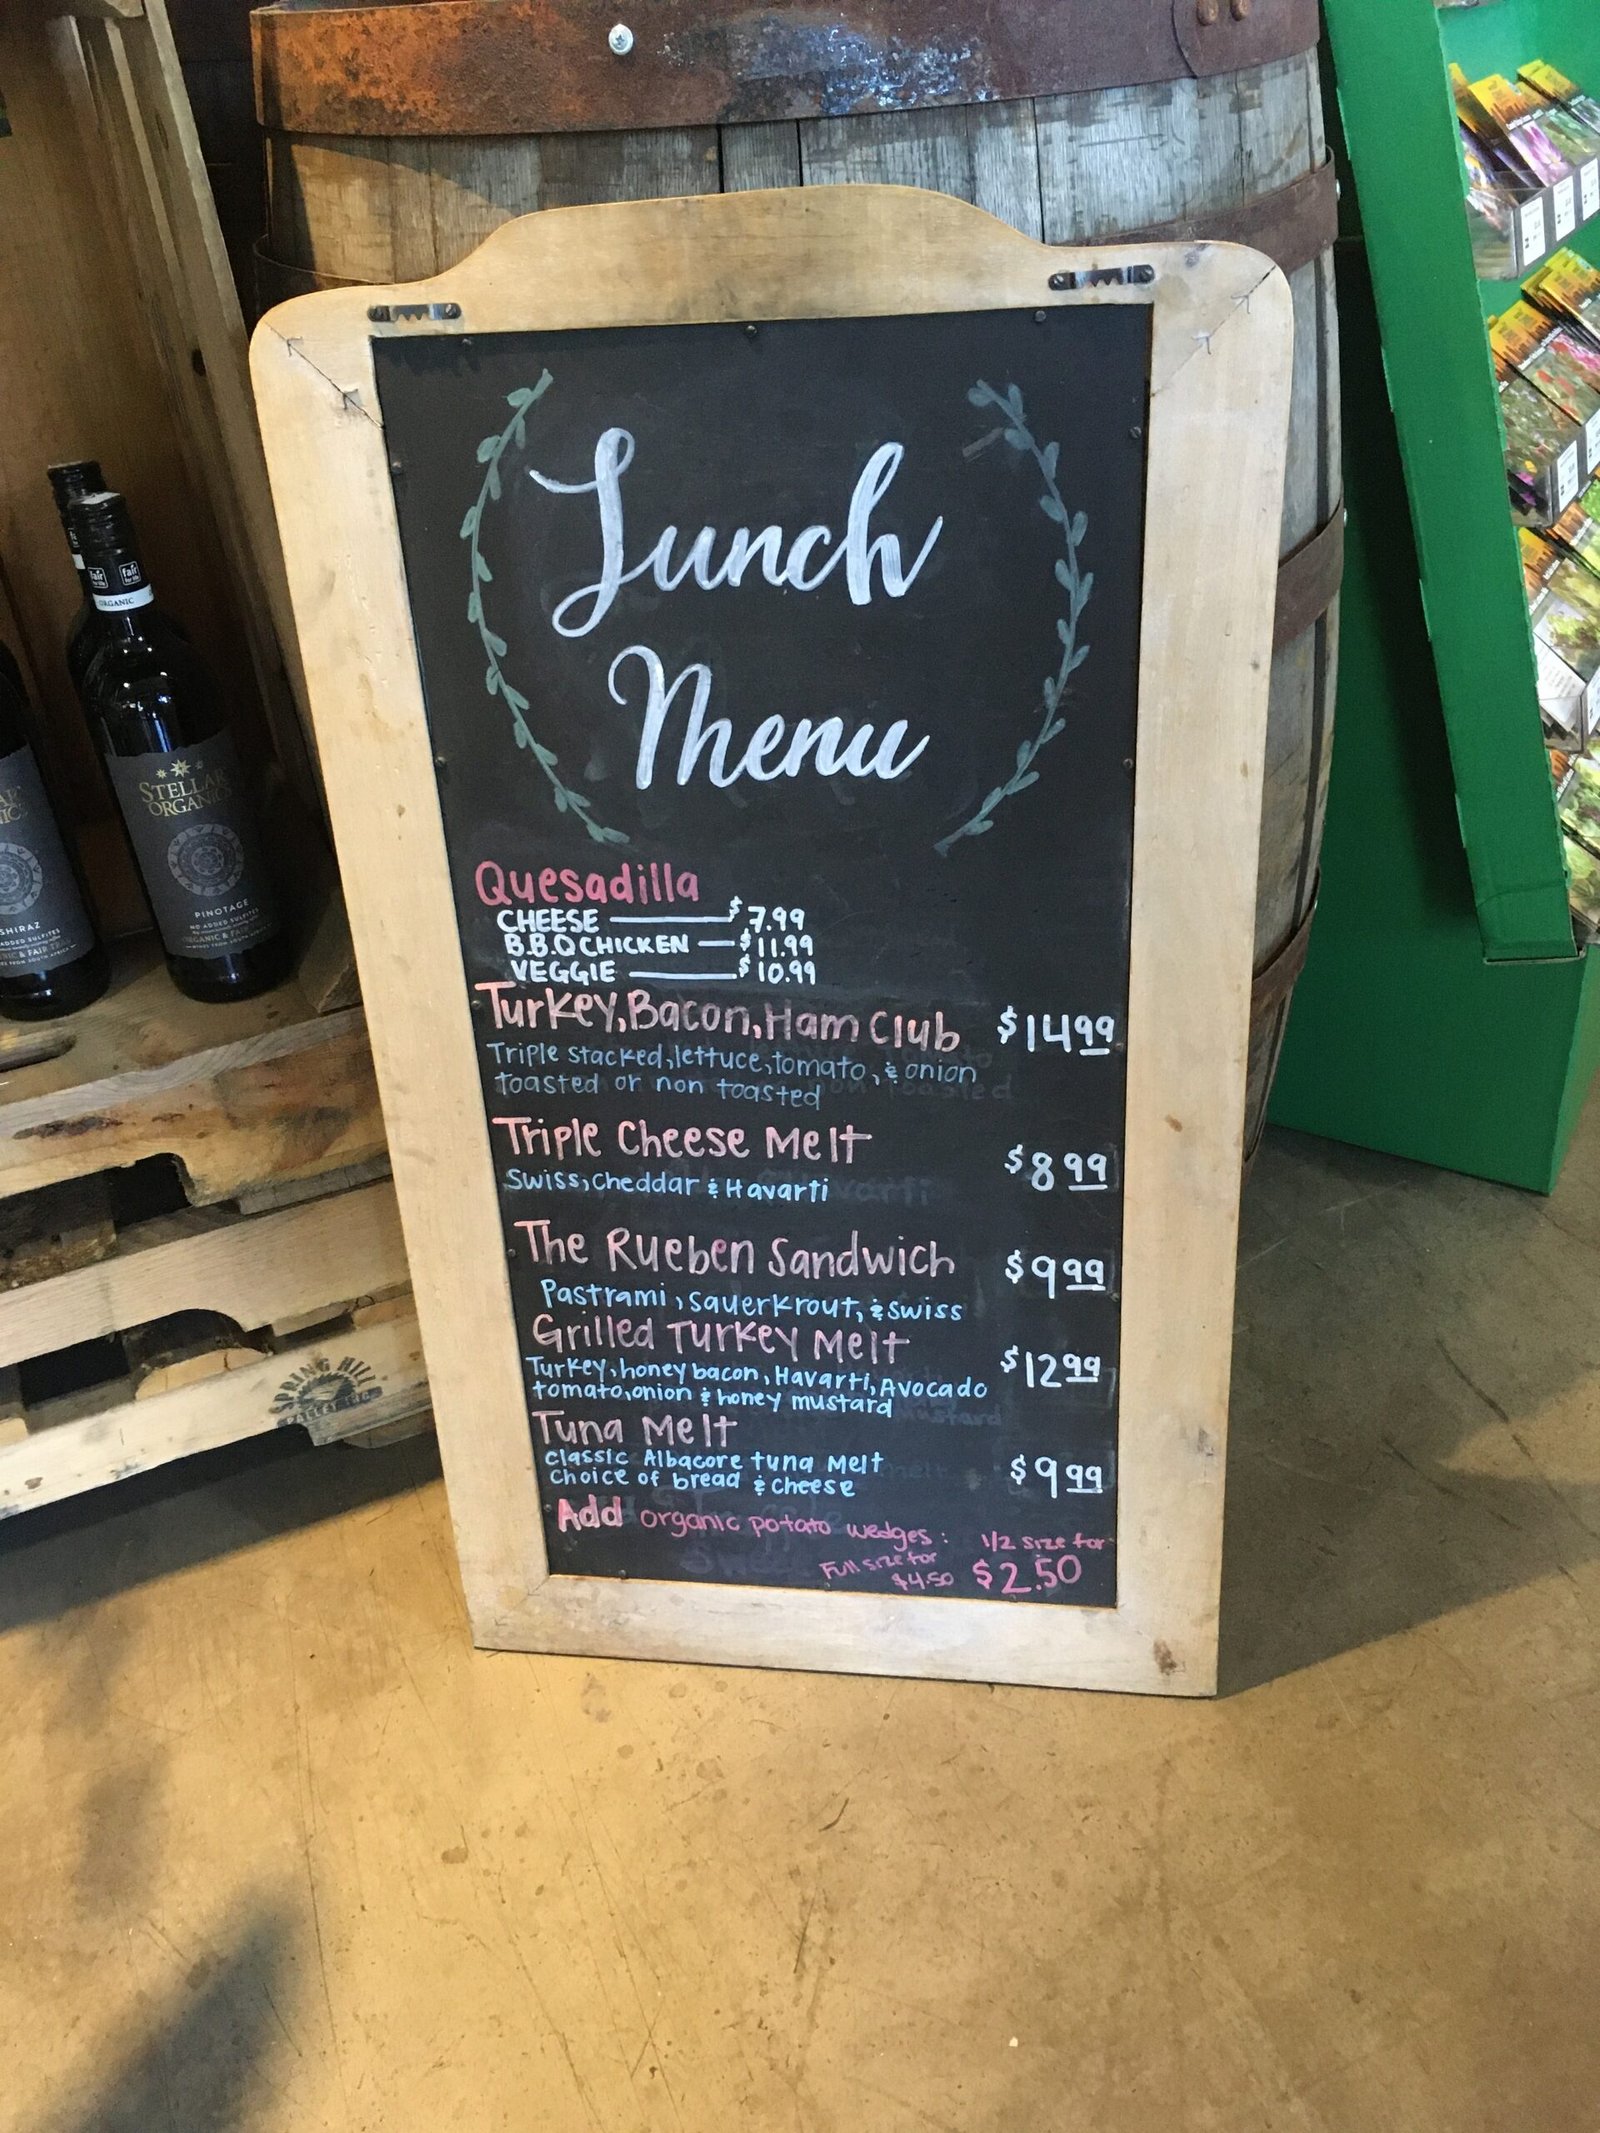 Lunch
Menu
Quesadilla
CHEESE $7.99
B.B.Q CHICKEN $11.99
VEGGIE $10.99
Turkey, Bacon, Ham Club $14.99
Triple stacked, lettuce, tomato, & onion
toasted or non toasted
Triple Cheese Melt $8.99
Swiss, Cheddar & Havarti
The Rueben Sandwich $9.99
Pastrami, sauerkrout, & swiss
Grilled Turkey Melt $12.99
Turkey, honey bacon, Havarti, Avocado
tomato, onion & honey mustard
Tuna Melt $9.99
classic Albacore tuna Melt
choice of bread & cheese
Add organic potato wedges: 1/2 size for
Full size for $2.50
$4.50
fair
for life
ORGANIC
STELLAR
ORGANICS
PINOTAGE
NO ADDED SULFITES
ORGANIC & FAIR TRADE
WINES FROM SOUTH AFRICA
SHIRAZ
ADDED SULFITES
SPRING HILL
PALLET INC.